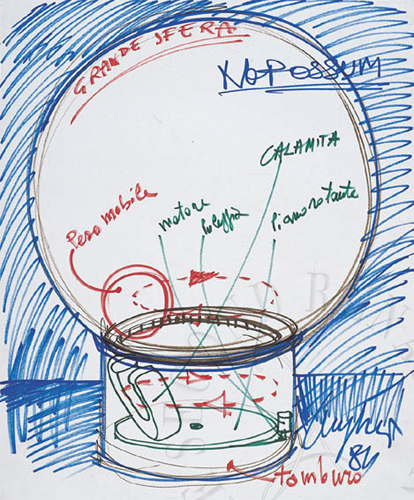 GRANDE SFERA
NOPOSSUM
CALAMITA
Peso mobile
motore
Puleggia
Piano rotante
84
tamburo